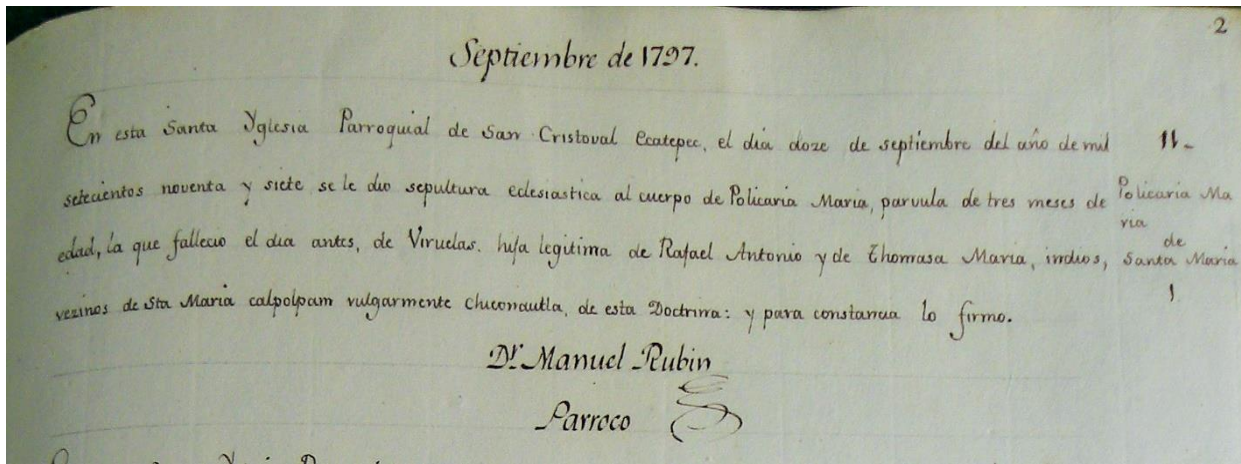 2
Septiembre de 1797.
En esta Santa Yglesia Parroquial de San Cristoval Ecatepec, el dia doze de septiembre del año de mil
setecientos noventa y siete se le dio sepultura eclesiastica al cuerpo de Policaria Maria, parvula de tres meses de
edad, la que fallecio el dia antes, de Viruelas. hija legitima de Rafael Antonio y de Thomasa Maria, indios,
vezinos de Sta Maria calpolpam vulgarmente chiconautla, de esta Doctrina: y para constancia lo firmo.
Dr. Manuel Rubin
Parroco
11.
Policaria Ma
ria
de
Santa Maria
1